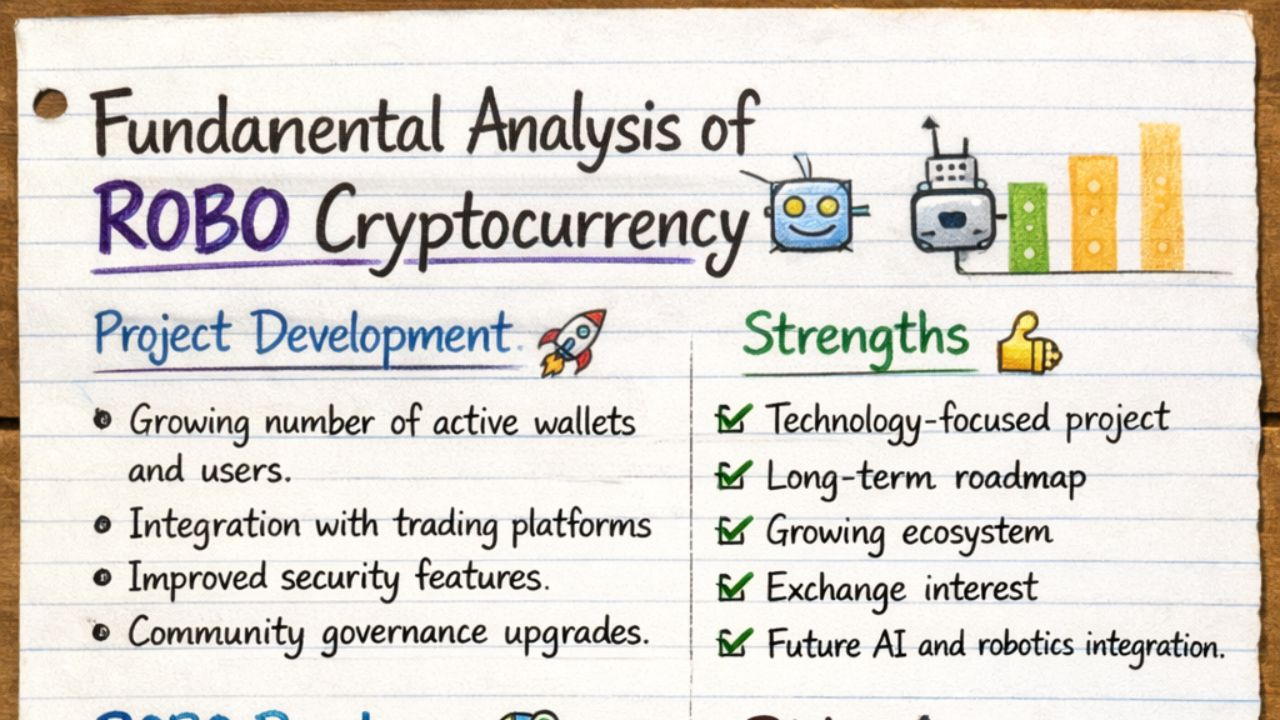 Fundanental Analysis of
ROBO Cryptocurrency
Project Development
Growing number of active wallets
and users.
Integration with trading platforms
Improved security features.
Community governance upgrades.
Strengths
Technology-focused project
Long-term roadmap
Growing ecosystem
Exchange interest
Future AI and robotics integration.
ROBO